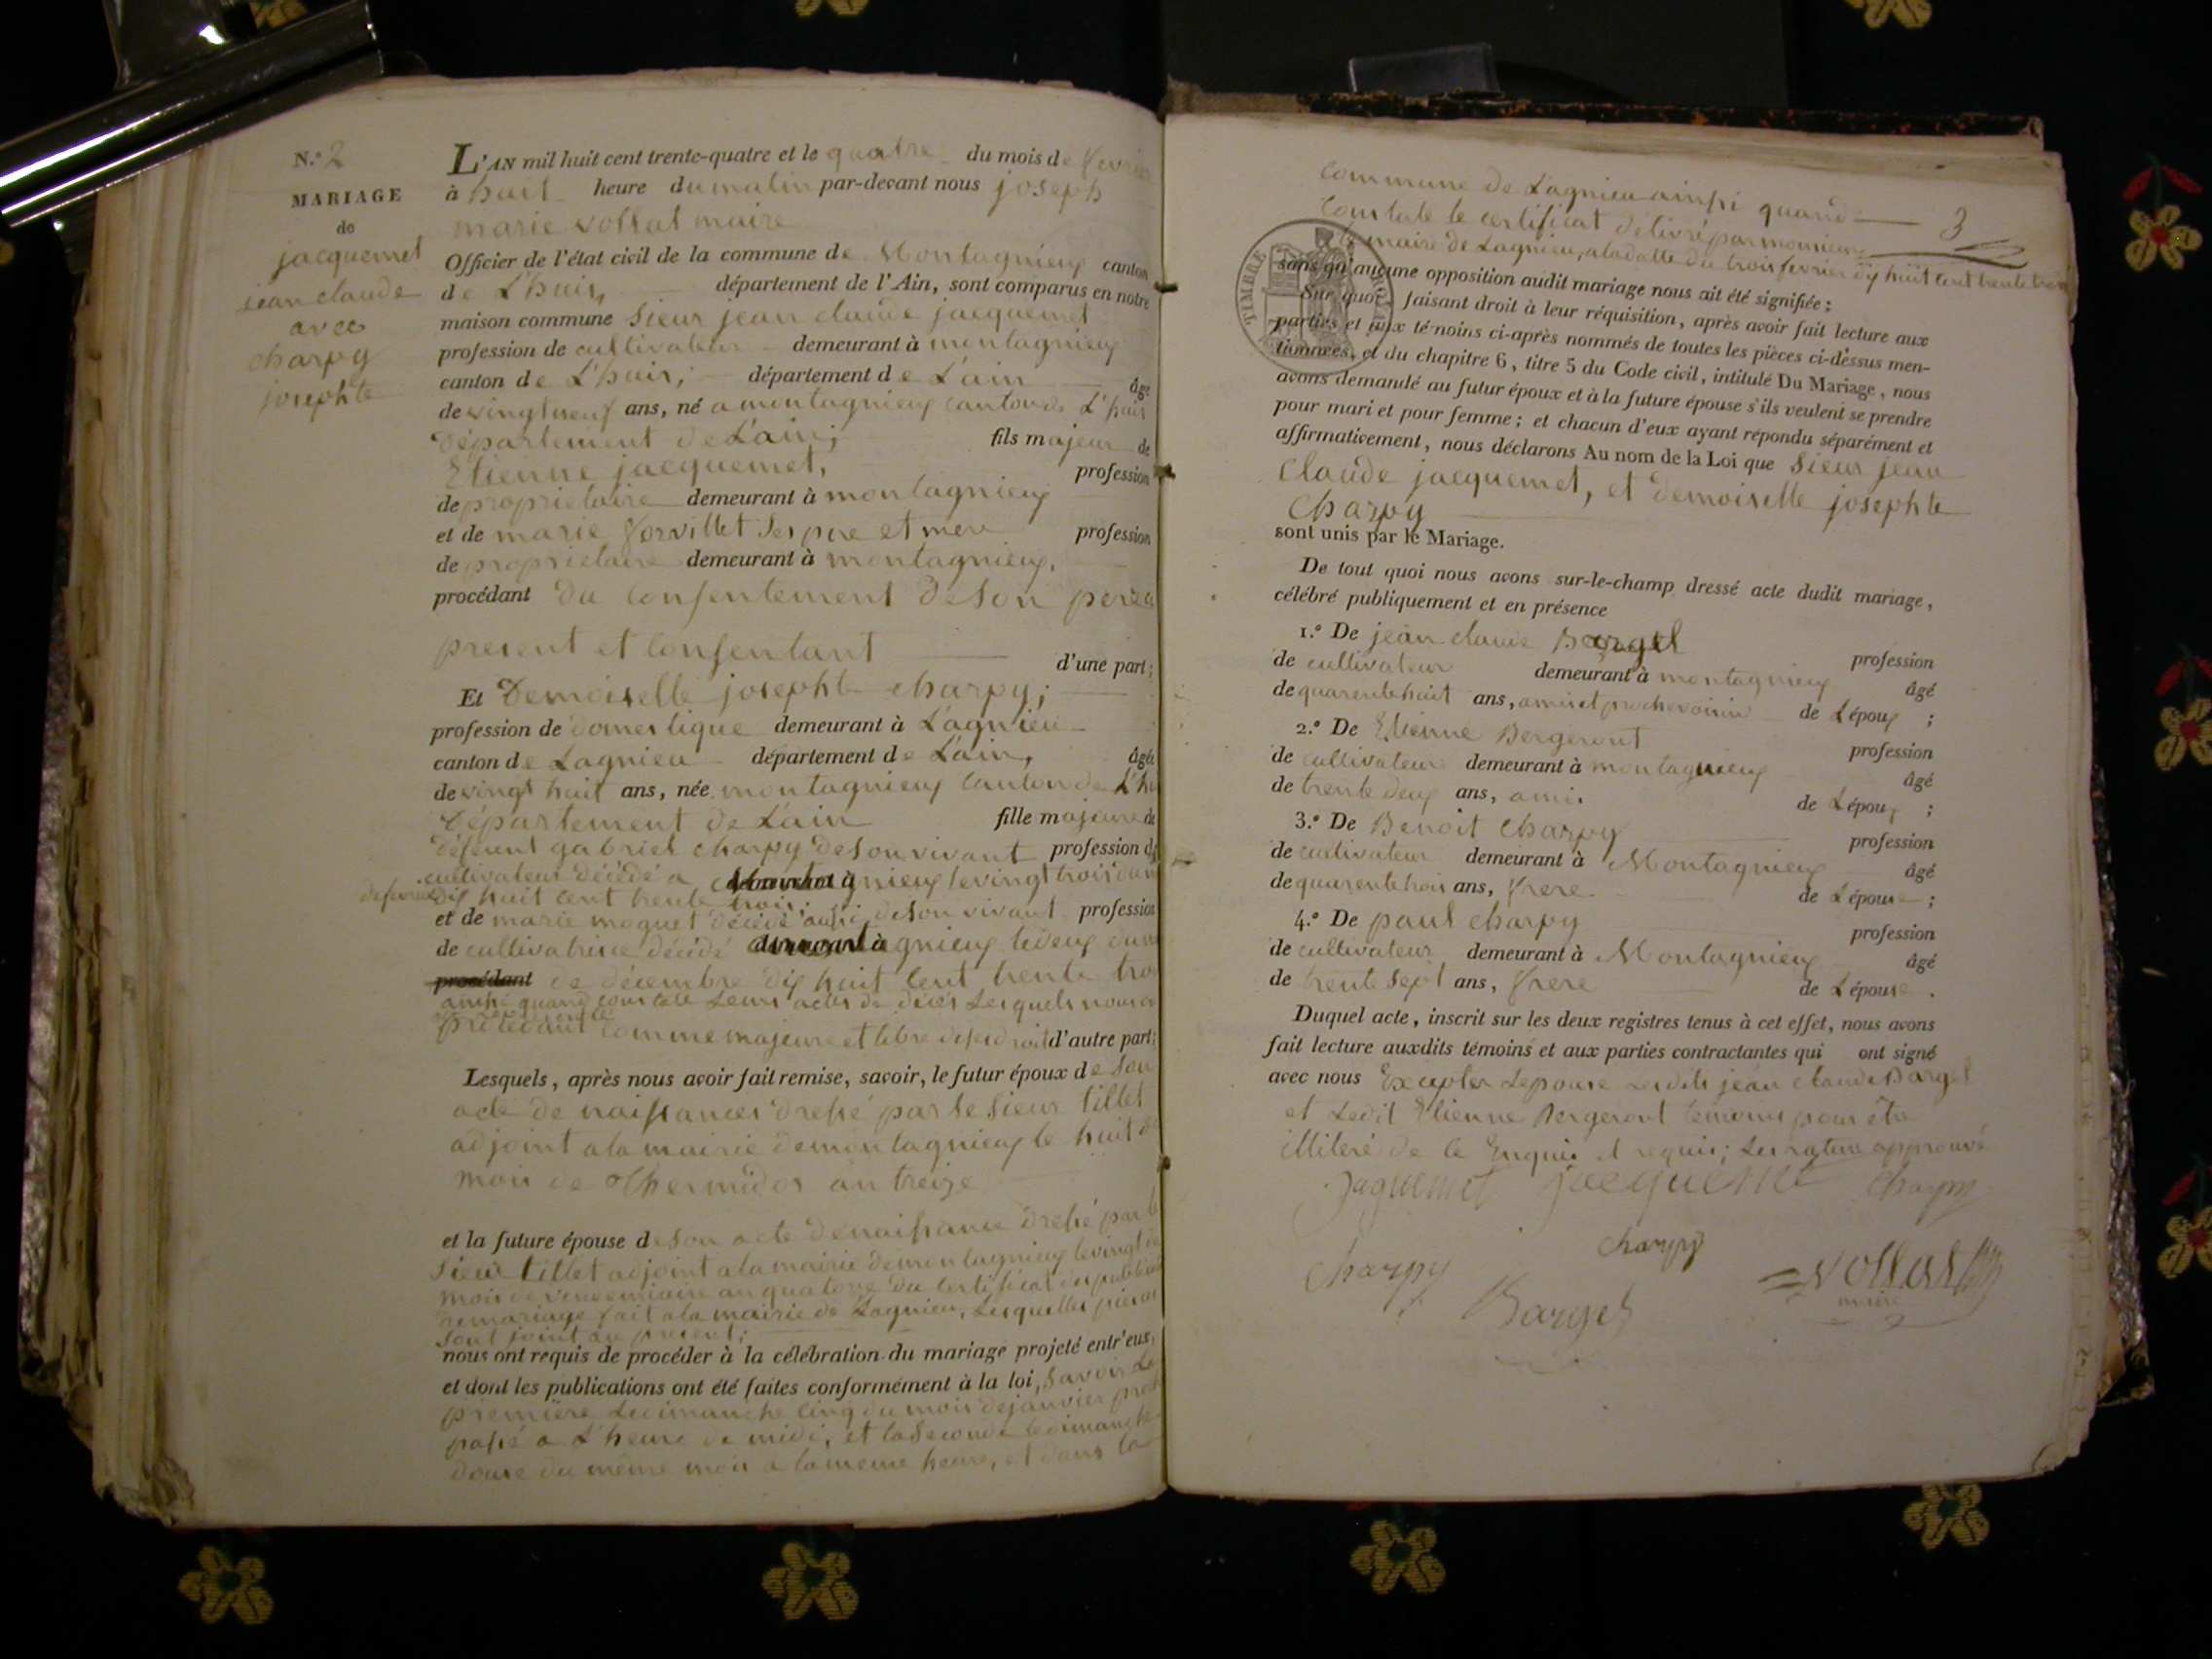 N.° 2
MARIAGE
de
jacquemet
jean claude
avec
charpy
josephte
L'AN mil huit cent trente-quatre et le quatre du mois de fevrier
à huit heure du matin par-devant nous joseph
marie vollat maire
Officier de l'état civil de la commune de Montagnieux canton
de L'huis, département de l'Ain, sont comparus en notre
maison commune Sieur jean claude jacquemet
profession de cultivateur demeurant à montagnieux
canton de L'huis; département de L'ain âgé
de vingt neuf ans, né a montagnieux canton de L'huis
Département de L'ain; fils majeur de
Etienne jacquemet, profession
de proprietaire demeurant à montagnieux
et de marie forvillet ses pere et mere profession
de proprietaire demeurant à montagnieux,
procédant du consentement de son pere
present et consentant d'une part;
Et Demoiselle josephte charpy;
profession de domestique demeurant à Lagnieu
canton de Lagnieu département de L'ain, âgée
de vingt huit ans, née montagnieux canton de L'hu
Département de L'ain fille majeure de
défeunt gabriel charpy de son vivant profession de
cultivateur décédé a montagnieux le vingt trois du m
de fevrier dix huit cent trente trois;
et de marie moguet décédé aussi de son vivant profession
de cultivatrice décédé a montagnieux le deux du m
procédant de décembre dix huit cent trente trois
ainsi quand constate Leurs actes de décès Lesquels nous o
procédant comme majeure et libre de ses droits d'autre part;
Lesquels, après nous avoir fait remise, savoir, le futur époux de son
acte de naissances dressé par le sieur tillet
adjoint a la mairie de montagnieux le huit du
mois de Thermidor an treize
et la future épouse de son acte de naissance dressé par le
Sieur tillet adjoint a la mairie de montagnieux le vingt
mois de vendemiaire an quatorze du certificat des publications
de mariage fait a la mairie de Lagnieu, Lesquelles pieces
sont joint au present;
nous ont requis de procéder à la célébration du mariage projeté entr'eux,
et dont les publications ont été faites conformément à la loi, savoir La
premiere Le dimanche cinq du mois de janvier proch
passé a L'heure de midi, et la seconde le dimanche
douze du même mois a la meme heure, et dans la
commune de Lagnieu ainsi quand
3
constate le certificat délivré par monsieur
le maire de Lagnieu, a la datte du trois fevrier dix huit cent trente trois
sans qu'aucune opposition audit mariage nous ait été signifiée;
TIMBRE ROYAL
Sur quoi, faisant droit à leur réquisition, après avoir fait lecture aux
parties et aux témoins ci-après nommés de toutes les pièces ci-dessus men-
tionnées, et du chapitre 6, titre 5 du Code civil, intitulé Du Mariage, nous
avons demandé au futur époux et à la future épouse s'ils veulent se prendre
pour mari et pour femme; et chacun d'eux ayant répondu séparément et
affirmativement, nous déclarons Au nom de la Loi que Sieur jean
claude jacquemet, et demoiselle josephte
charpy
sont unis par le Mariage.
De tout quoi nous avons sur-le-champ dressé acte dudit mariage,
célébré publiquement et en présence
1.° De jean claude Bargel
profession
de cultivateur demeurant à montagnieux
âgé
de quarente huit ans, amis et proche voisin de Lépoux ;
2.° De Etienne Bergeront
profession
de cultivateur demeurant à montagnieux
âgé
de trente deux ans, amis de Lépoux ;
3.° De Benoit charpy
profession
de cultivateur demeurant à Montagnieux
âgé
de quarente trois ans, frere de Lépouse ;
4.° De paul charpy
profession
de cultivateur demeurant à Montagnieux
âgé
de trente sept ans, frere de Lépouse .
Duquel acte, inscrit sur les deux registres tenus à cet effet, nous avons
fait lecture auxdits témoins et aux parties contractantes qui ont signé
avec nous Excepter Lepouse Lesdits jean claude Bargel
et Ledit Etienne Bergeront temoins pour être
illiteré de ce Enquis et requis; Les rature approuvé
Jaquemet jacquemet charpy
charpy
charpy Bargel vollat
maire